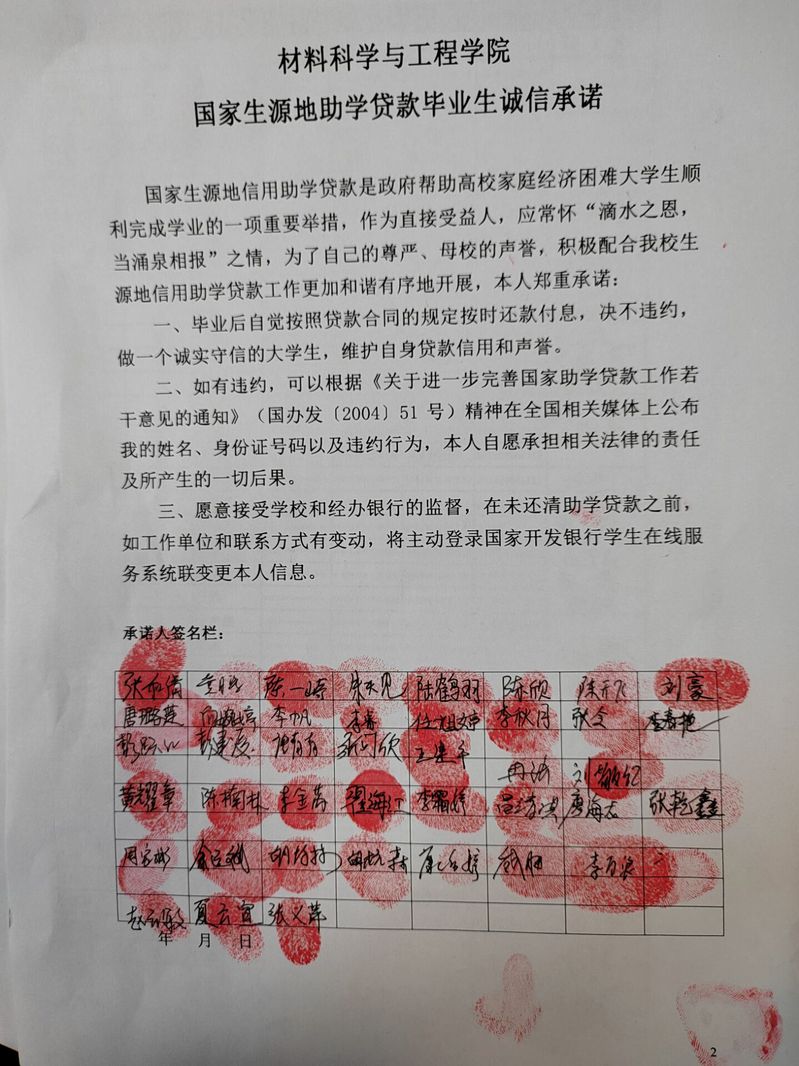 材料科学与工程学院
国家生源地助学贷款毕业生诚信承诺
国家生源地信用助学贷款是政府帮助高校家庭经济困难大学生顺
利完成学业的一项重要举措，作为直接受益人，应常怀“滴水之恩，
当涌泉相报”之情，为了自己的尊严、母校的声誉，积极配合我校生
源地信用助学贷款工作更加和谐有序地开展，本人郑重承诺：
一、毕业后自觉按照贷款合同的规定按时还款付息，决不违约，
做一个诚实守信的大学生，维护自身贷款信用和声誉。
二、如有违约，可以根据《关于进一步完善国家助学贷款工作若
干意见的通知》（国办发〔2004〕51 号）精神在全国相关媒体上公布
我的姓名、身份证号码以及违约行为，本人自愿承担相关法律的责任
及所产生的一切后果。
三、愿意接受学校和经办银行的监督，在未还清助学贷款之前，
如工作单位和联系方式有变动，将主动登录国家开发银行学生在线服
务系统联变更本人信息。
承诺人签名栏：
陆鹤羽 陈欣 刘豪
李帆
黄耀章 李金蒿 唐海志 张乾鑫
夏云宣 张义萍
年 月 日
2